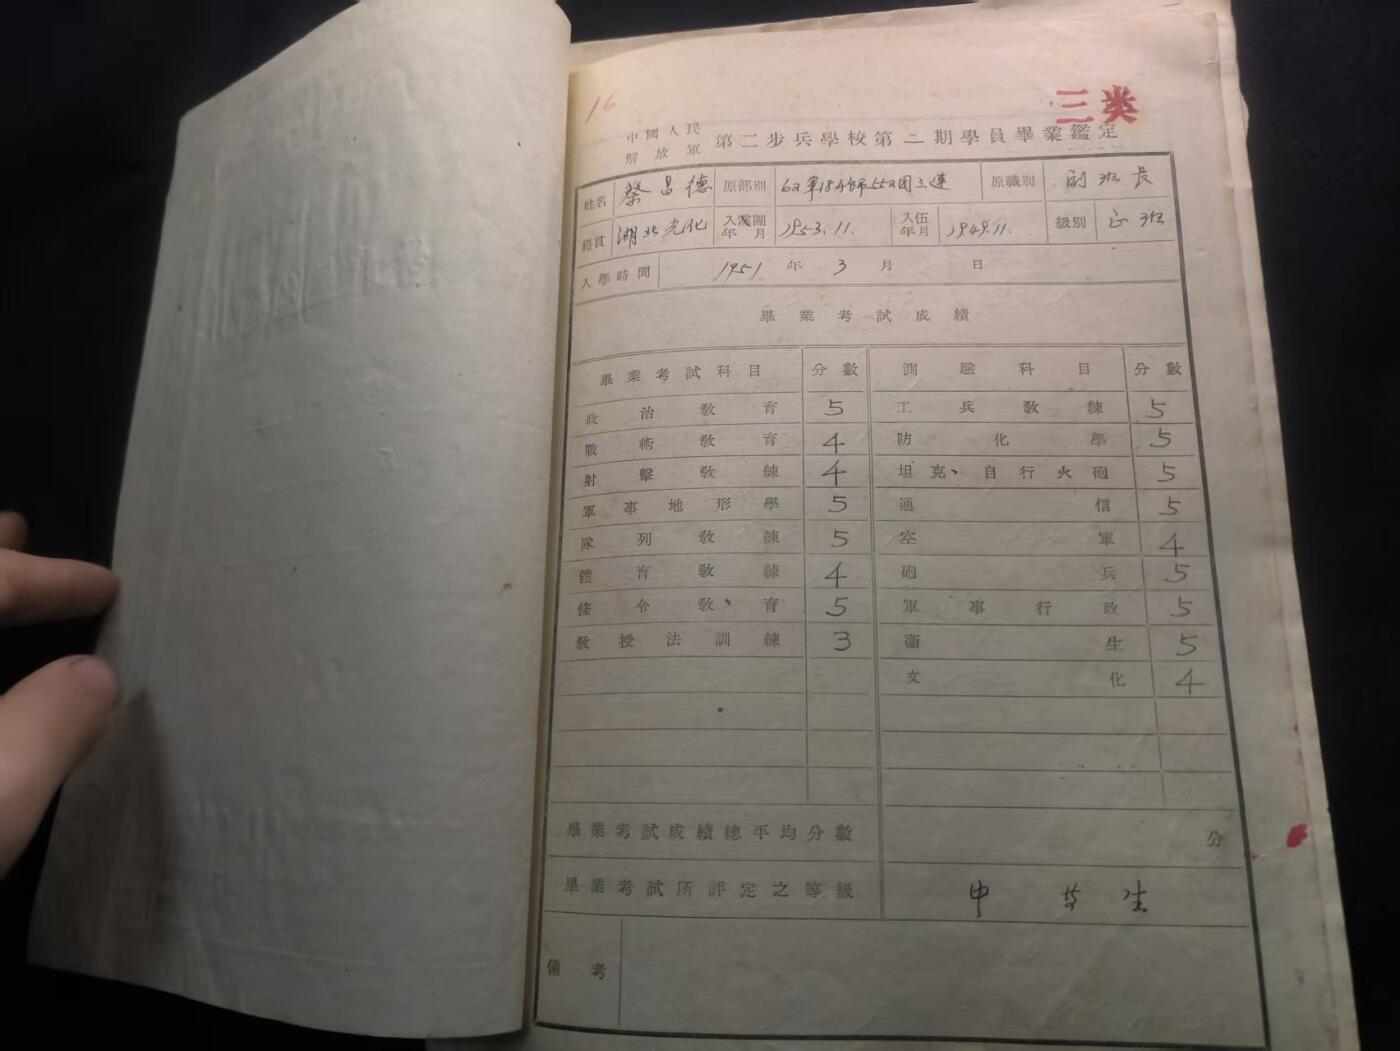 16
三类
中國人民解放軍 第二步兵學校第二期學員畢業鑑定
姓名 蔡昌德 原部別 62軍184師552团立連 原職別 副班長
籍貫 湖北光化 入黨團年月 1953.11. 入伍年月 1949.11. 級別 正班
入學時間 1951年3月 日
畢業考試成績
畢業考試科目 分數 測驗科目 分數
政治教育 5 工兵教練 5
戰術教育 4 防化學 5
射擊教練 4 坦克、自行火砲 5
軍事地形學 5 通信 5
隊列教練 5 空軍 4
體育教練 4 砲兵 5
條令教育 5 軍事行政 5
教授法訓練 3 衞生 5
文化 4
畢業考試成績總平均分數 分
畢業考試所評定之等級 中等生
備考